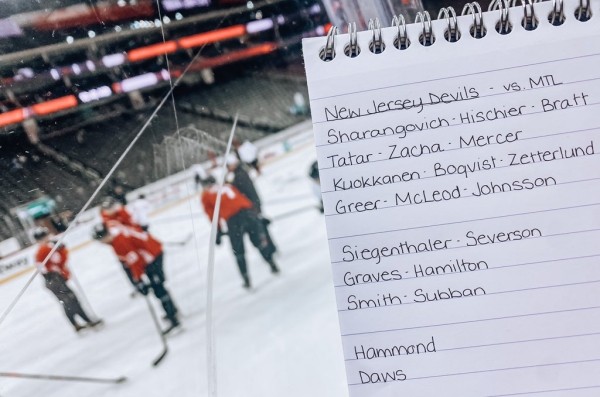 New Jersey Devils - vs. MTL
Sharangovich · Hischier · Bratt
Tatar · Zacha · Mercer
Kuokkanen · Boqvist · Zetterlund
Greer · McLeod · Johnsson
Siegenthaler · Severson
Graves · Hamilton
Smith · Subban
Hammond
Daws